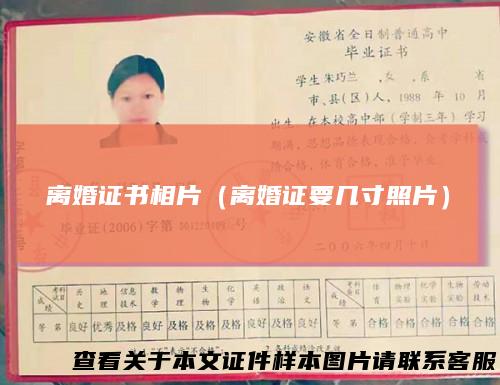 安徽省全日制普通高中
毕业证书
学生朱巧兰 ,女 ,系 省
市、县(区)人, 1988 年 10 月
出生 在本校高中部(学制三年)学习
期满,思想品德表现合格,会考学科成
绩合格,体育合格,准予毕业
离婚证书相片(离婚证要几寸照片)
毕业证(2006)字第
二00六年四月十日
科目 成绩 历史 地理 信息技术 数学 物理 生物 化学 英语 政治 语文
等第 良好 优秀 及格 良好 及格 及格 及格 良好 及格 良好
考查科目 成绩 体育 物理实验 化学实验 生物实验 劳动技术
等第 合格 合格 合格 合格 合格
查看关于本文证件样本图片请联系客服